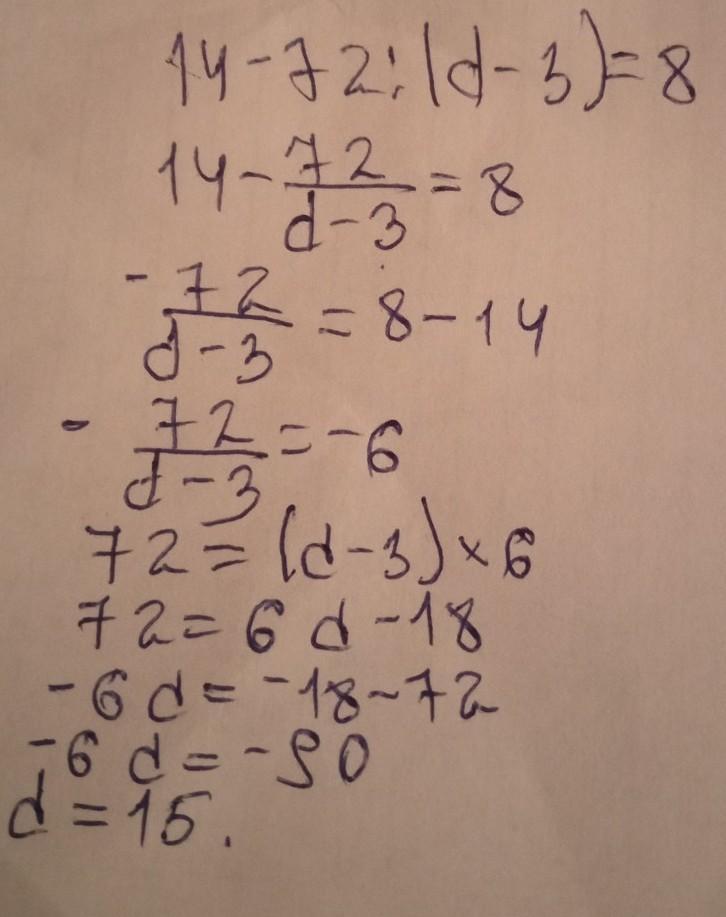 14-72:(d-3)=8
14-72/(d-3)=8
-72/(d-3)=8-14
-72/(d-3)=-6
72=(d-3)×6
72=6d-18
-6d=-18-72
-6d=-90
d=15.